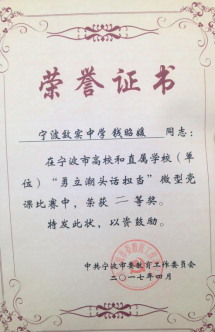 荣誉证书
宁波效实中学 钱昭媛 同志：
在宁波市高校和直属学校（单
位）“勇立潮头话担当”微型党
课比赛中，荣获 二等奖。
特发此状，以资鼓励。
中共宁波市委教育工作委员会
二〇一七年四月